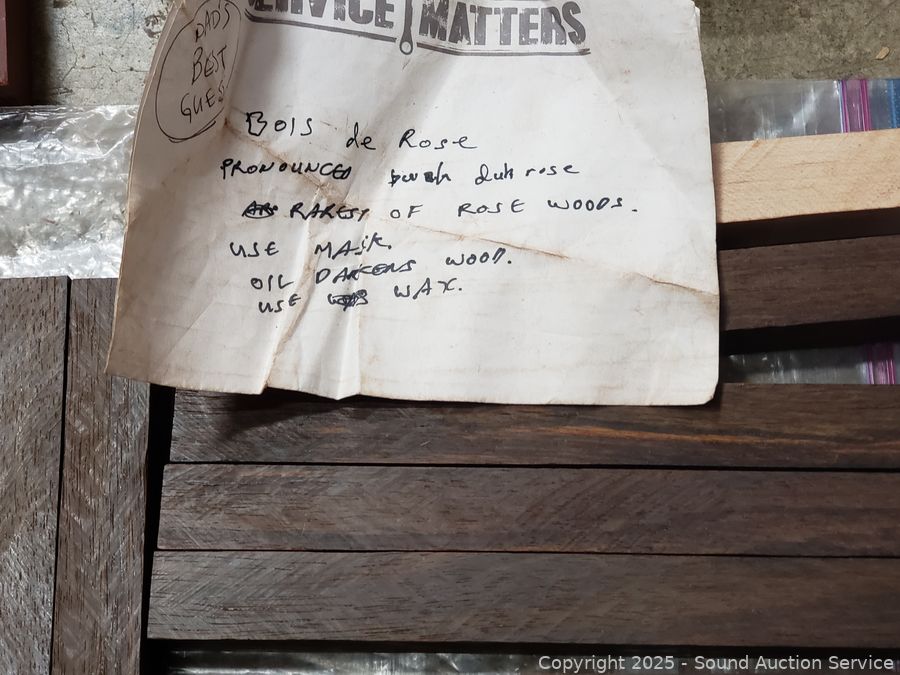 SERVICE MATTERS
DAD'S
BEST
GUES
BOIS de Rose
PRONOUNCED duh rose
RAREST OF ROSE WOODS.
USE MASK.
OIL DARKENS WOOD.
USE WAX.
Copyright 2025 - Sound Auction Service